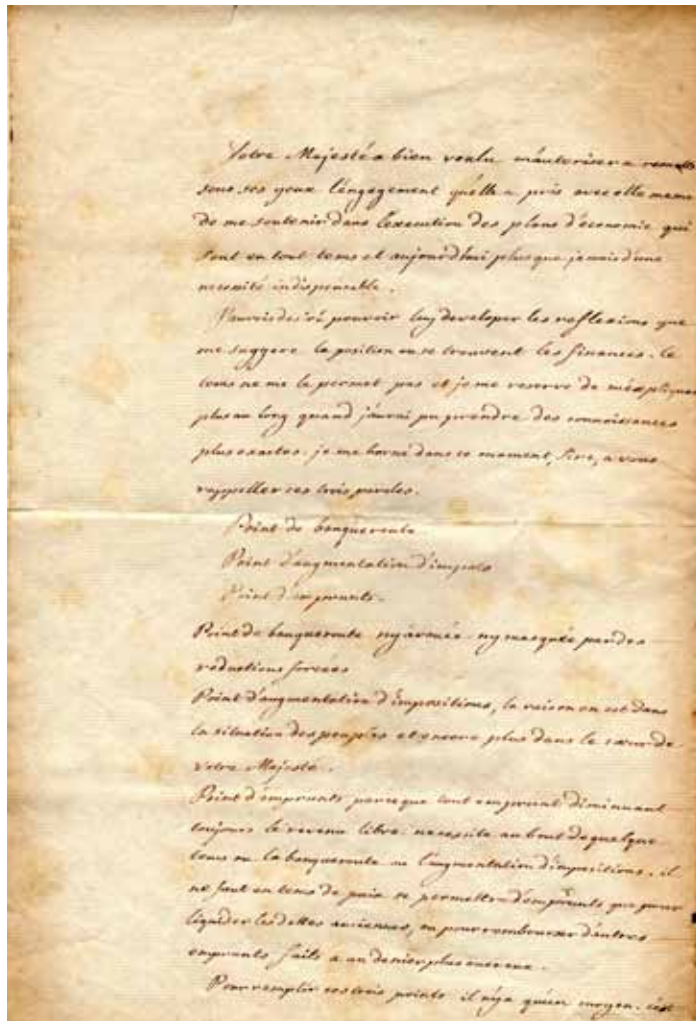 Votre Majesté a bien voulu m'autoriser a remettre
sous ses yeux l'engagement qu'elle a pris avec elle meme
de me soutenir dans l'execution des plans d'économie qui
sont en tout tems et aujourd'hui plus que jamais d'une
necessité indispensable.
J'aurois desiré pouvoir luy developer les reflexions que
me suggere la position ou se trouvent les finances. le
tems ne me le permet pas et je me reserve de m'expliquer
plus au long quand j'aurai pu prendre des connoissances
plus exactes. je me borne dans ce moment, Sire, a vous
rappeller ces trois paroles.
Point de banqueroute
Point d'augmentation d'impots
Point d'emprunts.
Point de banqueroute ny avouée ny masquée par des
reductions forcées
Point d'augmentation d'impositions, la raison en est dans
la situation des peuples et encore plus dans le cœur de
Votre Majesté.
Point d'emprunts parce que tout emprunt diminuant
toujours le revenu libre. necessite au bout de quelque
tems ou la banqueroute ou l'augmentation d'impositions. il
ne faut en tems de paix se permettre d'emprunts que pour
liquider les dettes anciennes, ou pour rembourser d'autres
emprunts faits a un denier plus onereux.
Pour remplir ces trois points il n'y a qu'un moyen. c'est